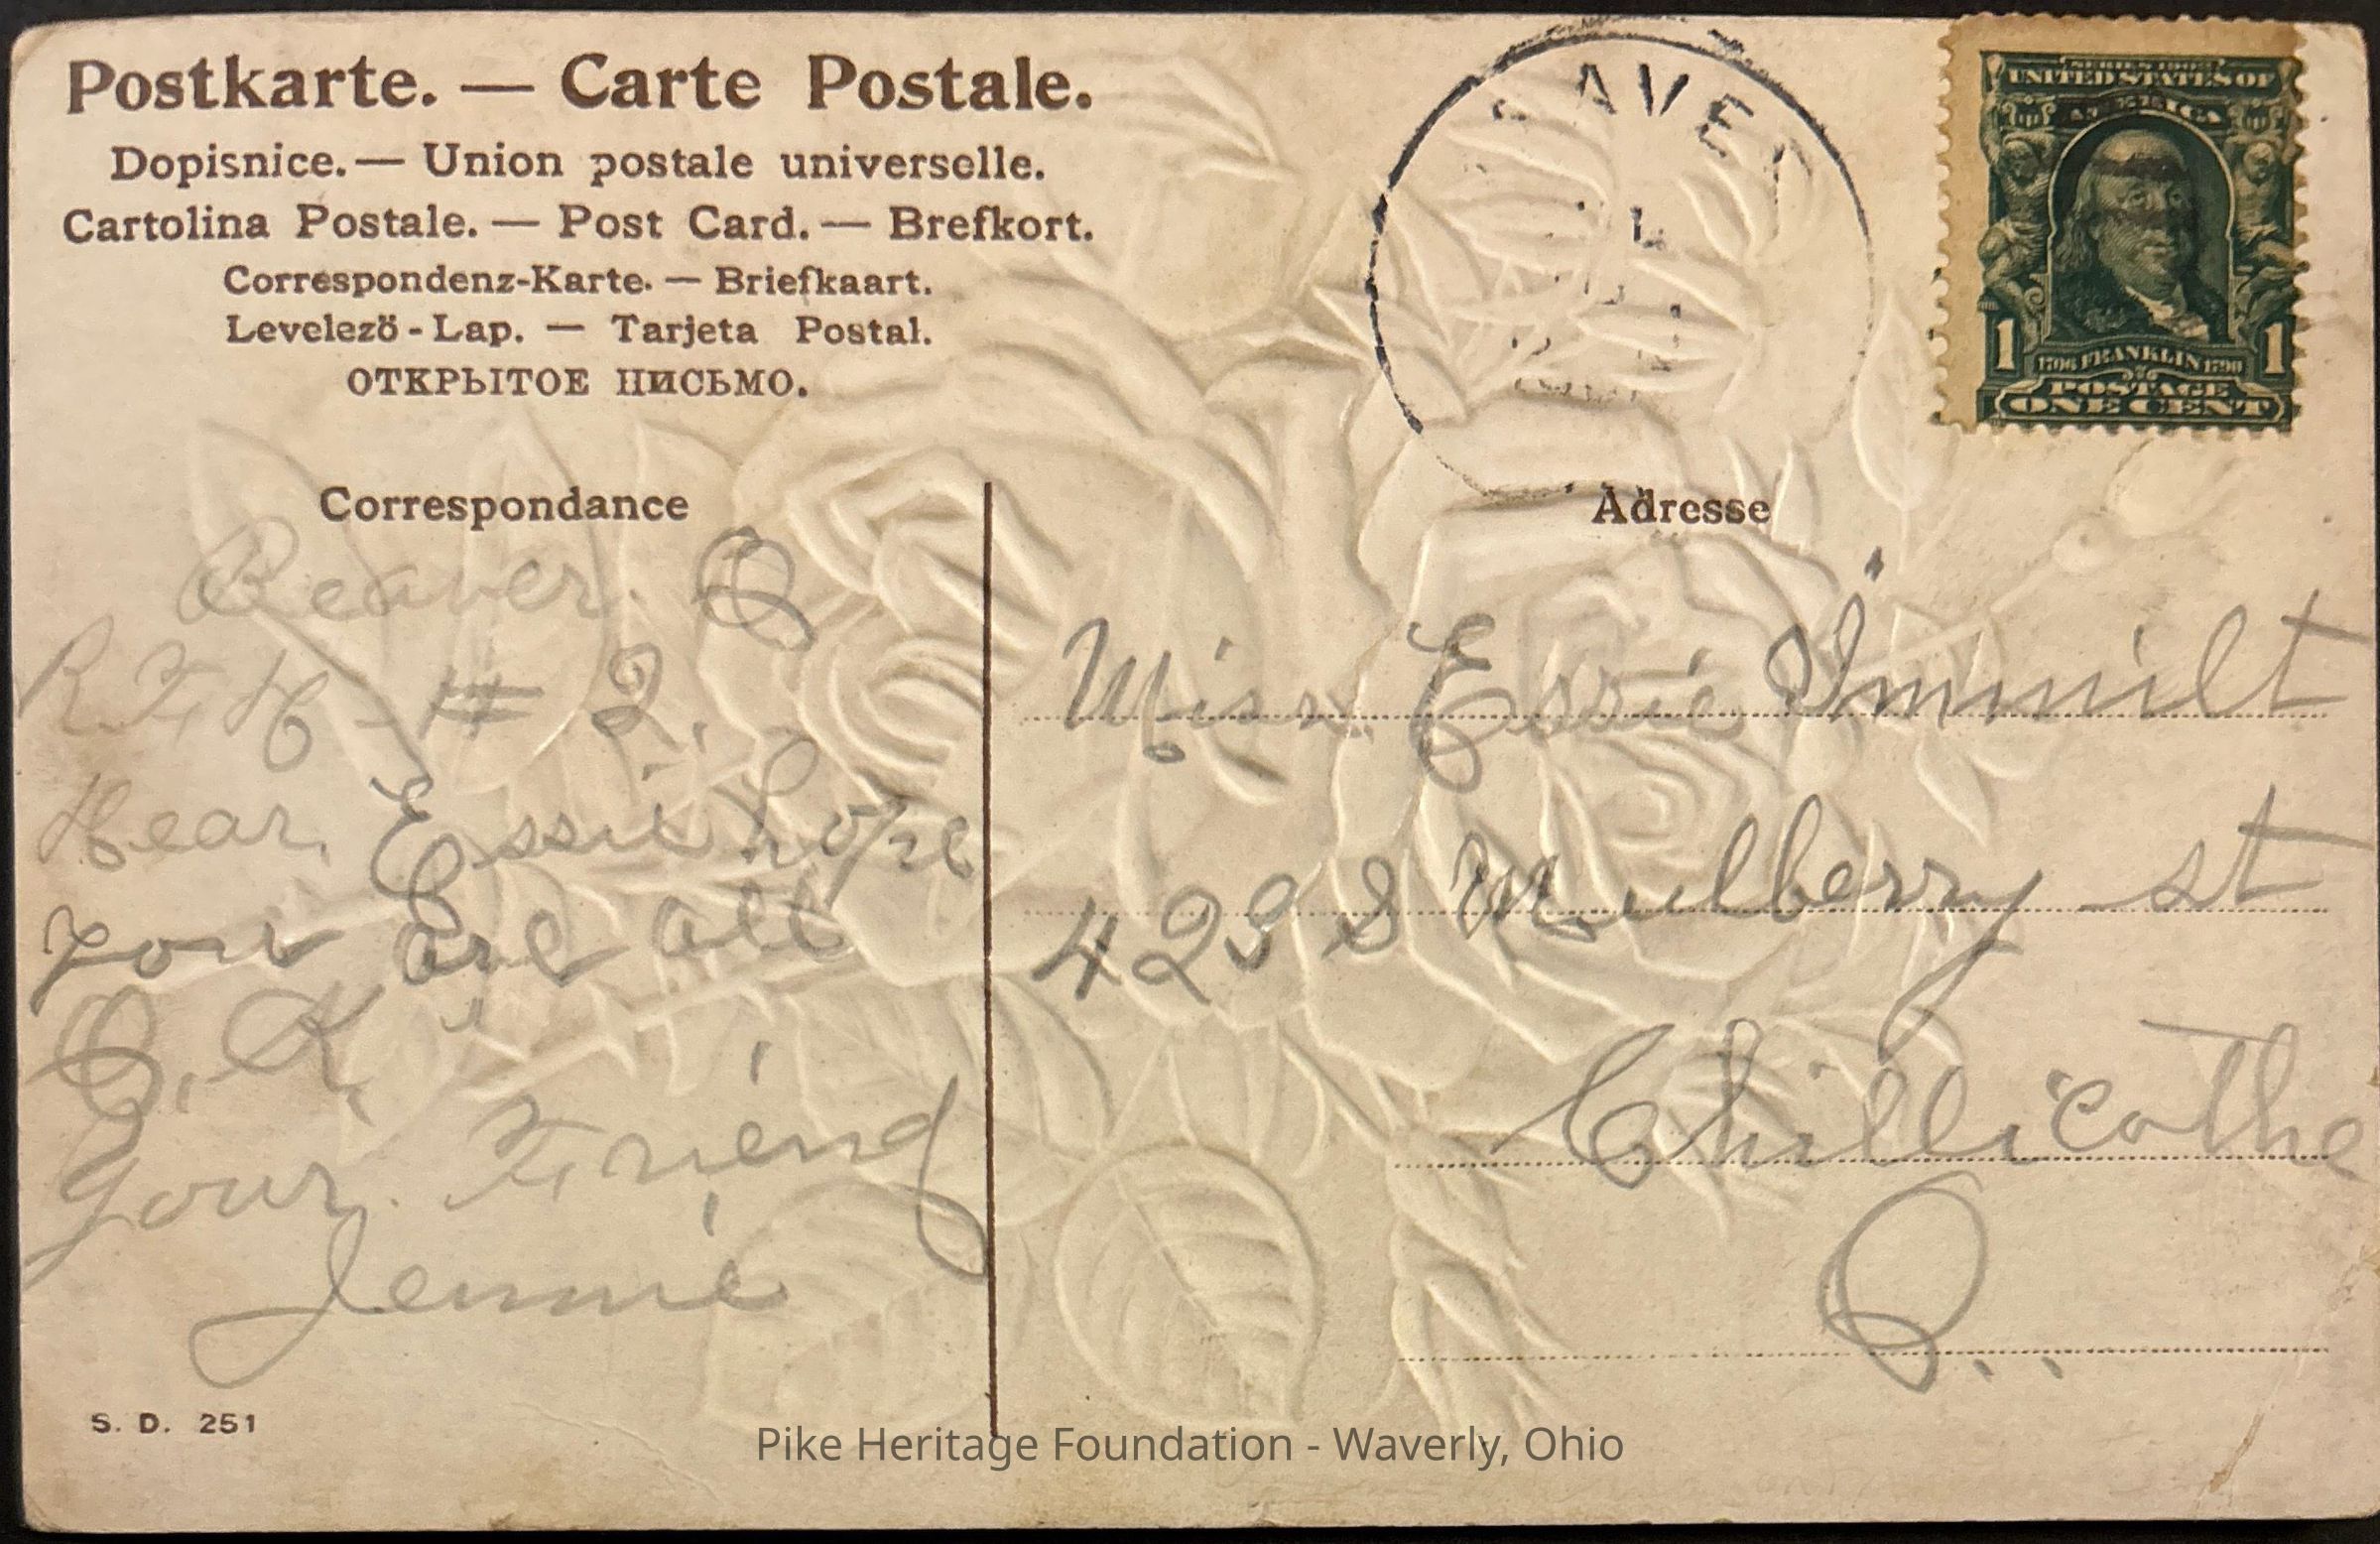 Postkarte. — Carte Postale.
Dopisnice. — Union postale universelle.
Cartolina Postale. — Post Card. — Brefkort.
Correspondenz-Karte. — Briefkaart.
Levelezö-Lap. — Tarjeta Postal.
ОТКРЫТОЕ ПИСЬМО.
AVE
SERIES 1902
UNITED STATES OF
AMERICA
1 1706 FRANKLIN 1790 1
POSTAGE
ONE CENT
Correspondance
Beaver. O
R.F.D - # 2.
Dear, Essie hope
you are all
O.K.
Your. Friend
Jennie
S. D. 251
Adresse
Miss Essie Immilt
423 S Mulberry st
Chillicothe
O..
Pike Heritage Foundation - Waverly, Ohio